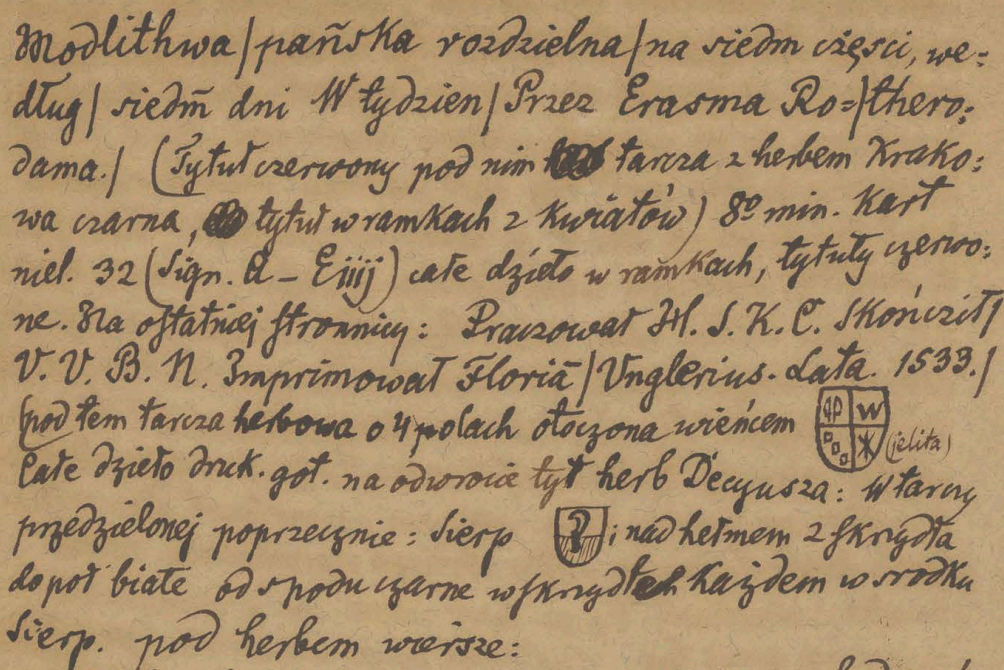 Modlithwa/pańska rozdzielna/na siedm części, we=
dług/siedm̄ dni W tydzien/Przez Erasma Ro=/thero=
dama./ (Tytuł czerwony pod nim tarcza z herbem Krako=
wa czarna, tytuł w ramkach z kwiatów) 8º min. Kart
niel. 32 (Sign. A – Eiiij) całe dzieło w ramkach, tytuły czerwo=
ne. Na ostatniej stronnicy: Praczował H. S. K. C. Skończił/
V. V. B. N. Imprimował Floriā/Vnglerius. Lata. 1533./
(pod tem tarcza herbowa o 4 polach otoczona wieńcem W (jelita)
Całe dzieło druk. got. na odwrocie tyt herb Decyusza: W tarczy
przedzielonej poprzecznie: Sierp ; nad hełmem 2 skrzydła
do poł białe od spodu czarne w skrzydłach każdem w srodku
Sierp. pod herbem wiersze: